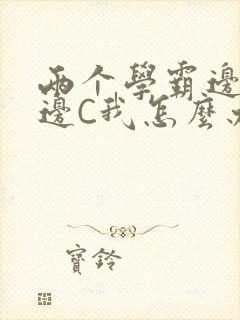 兩个學霸邊
邊C我怎麼
寶鈴